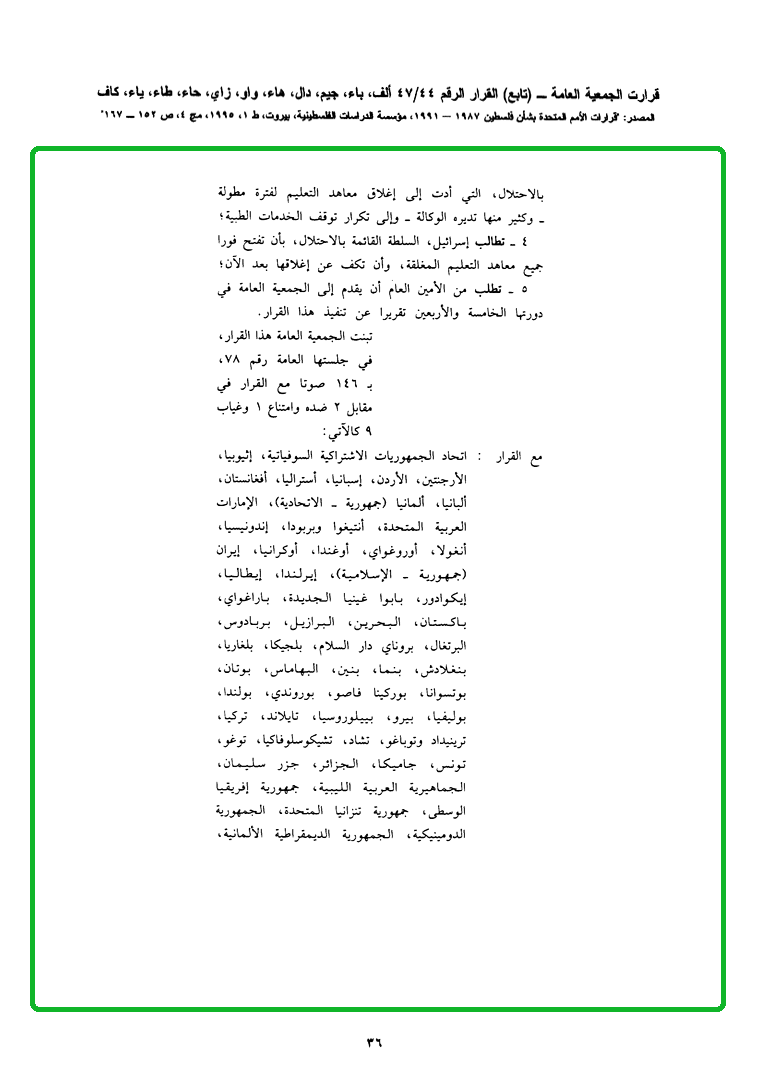 قرارت الجمعية العامة ــ (تابع) القرار الرقم ٤٧/٤٤ ألف، باء، جيم، دال، هاء، واو، زاي، حاء، طاء، ياء، كاف
المصدر: "قرارات الأمم المتحدة بشأن فلسطين ١٩٨٧ – ١٩٩١، مؤسسة الدراسات الفلسطينية، بيروت، ط ١، ١٩٩٥، مج ٤، ص ١٥٢ ــ ١٦٧"
بالاحتلال، التي أدت إلى إغلاق معاهد التعليم لفترة مطولة
ـ وكثير منها تديره الوكالة ـ وإلى تكرار توقف الخدمات الطبية؛
٤ ـ تطالب إسرائيل، السلطة القائمة بالاحتلال، بأن تفتح فورا
جميع معاهد التعليم المغلقة، وأن تكف عن إغلاقها بعد الآن؛
٥ ـ تطلب من الأمين العام أن يقدم إلى الجمعية العامة في
دورتها الخامسة والأربعين تقريرا عن تنفيذ هذا القرار.
تبنت الجمعية العامة هذا القرار،
في جلستها العامة رقم ٧٨،
بـ ١٤٦ صوتا مع القرار في
مقابل ٢ ضده وامتناع ١ وغياب
٩ كالآتي:
مع القرار : اتحاد الجمهوريات الاشتراكية السوفياتية، إثيوبيا،
الأرجنتين، الأردن، إسبانيا، أستراليا، أفغانستان،
ألبانيا، ألمانيا (جمهورية ـ الاتحادية)، الإمارات
العربية المتحدة، أنتيغوا وبربودا، إندونيسيا،
أنغولا، أوروغواي، أوغندا، أوكرانيا، إيران
(جمهورية ـ الإسلامية)، إيرلندا، إيطاليا،
إيكوادور، بابوا غينيا الجديدة، باراغواي،
باكستان، البحرين، البرازيل، بربادوس،
البرتغال، بروناي دار السلام، بلجيكا، بلغاريا،
بنغلادش، بنما، بنين، البهاماس، بوتان،
بوتسوانا، بوركينا فاصو، بوروندي، بولندا،
بوليفيا، بيرو، بييلوروسيا، تايلاند، تركيا،
ترينيداد وتوباغو، تشاد، تشيكوسلوفاكيا، توغو،
تونس، جاميكا، الجزائر، جزر سليمان،
الجماهيرية العربية الليبية، جمهورية إفريقيا
الوسطى، جمهورية تنزانيا المتحدة، الجمهورية
الدومينيكية، الجمهورية الديمقراطية الألمانية،
٣٦